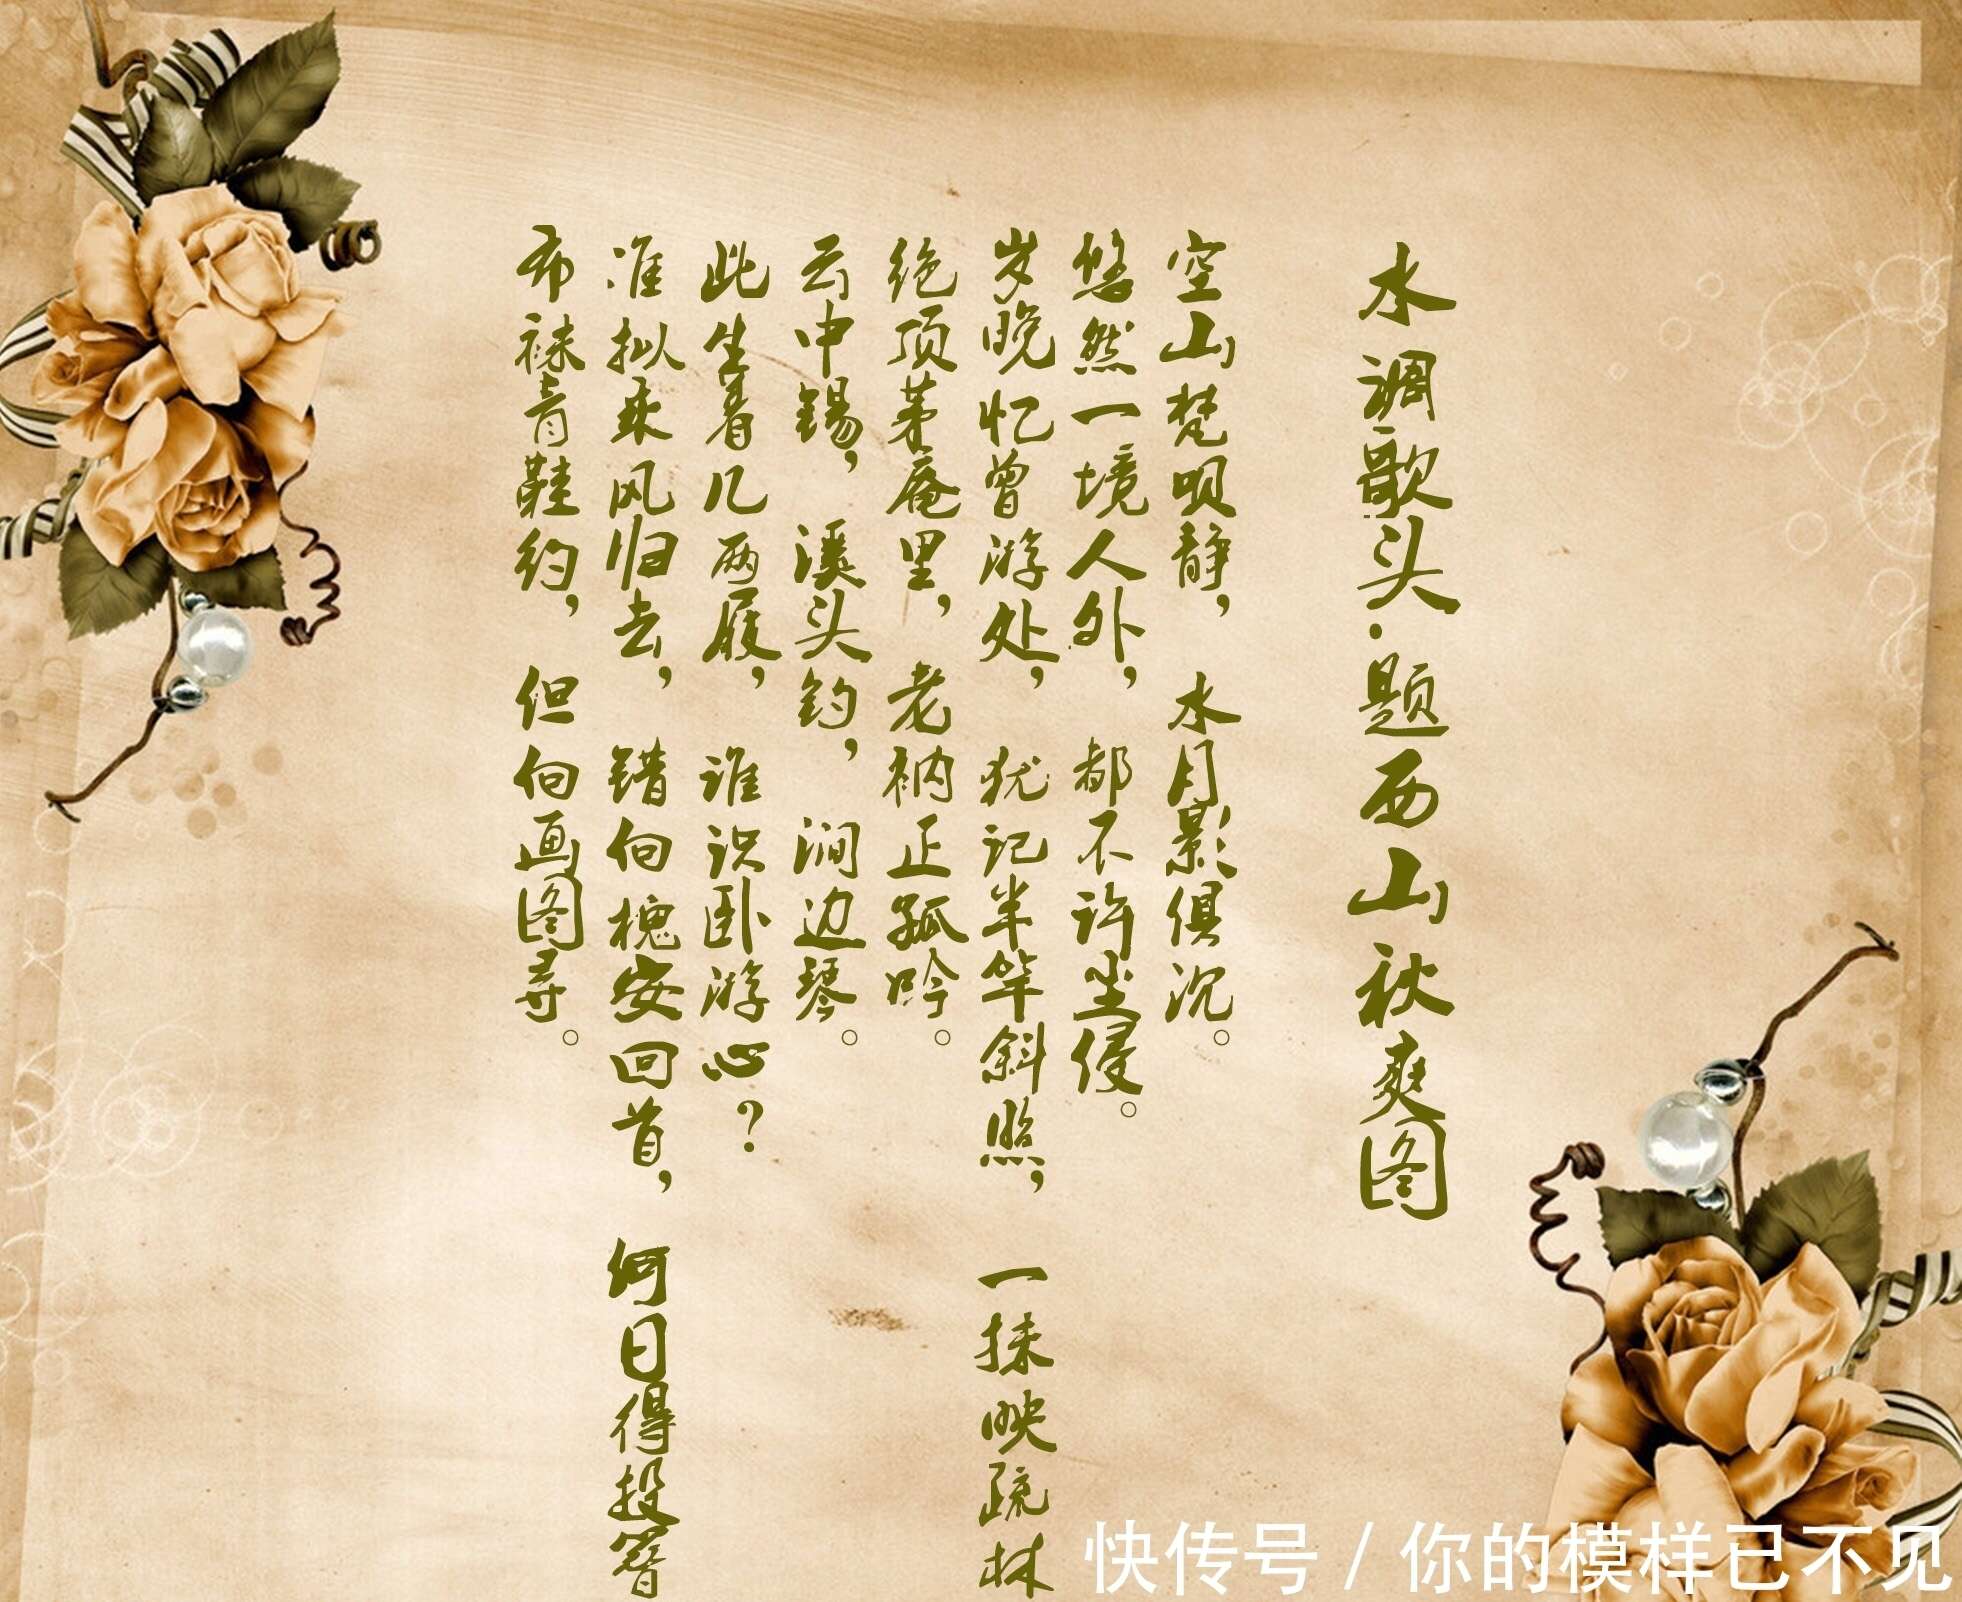 水调歌头·题西山秋爽图
空山梵呗静，水月影俱沉。
悠然一境人外，都不许尘侵。
岁晚忆曾游处，犹记半竿斜照，一抹映疏林
绝顶茅庵里，老衲正孤吟。
云中锡，溪头钓，涧边琴。
此生着几两屐，谁识卧游心？
准拟乘风归去，错向槐安回首，何日得投簪
布袜青鞋约，但向画图寻。
快传号 / 你的模样已不见